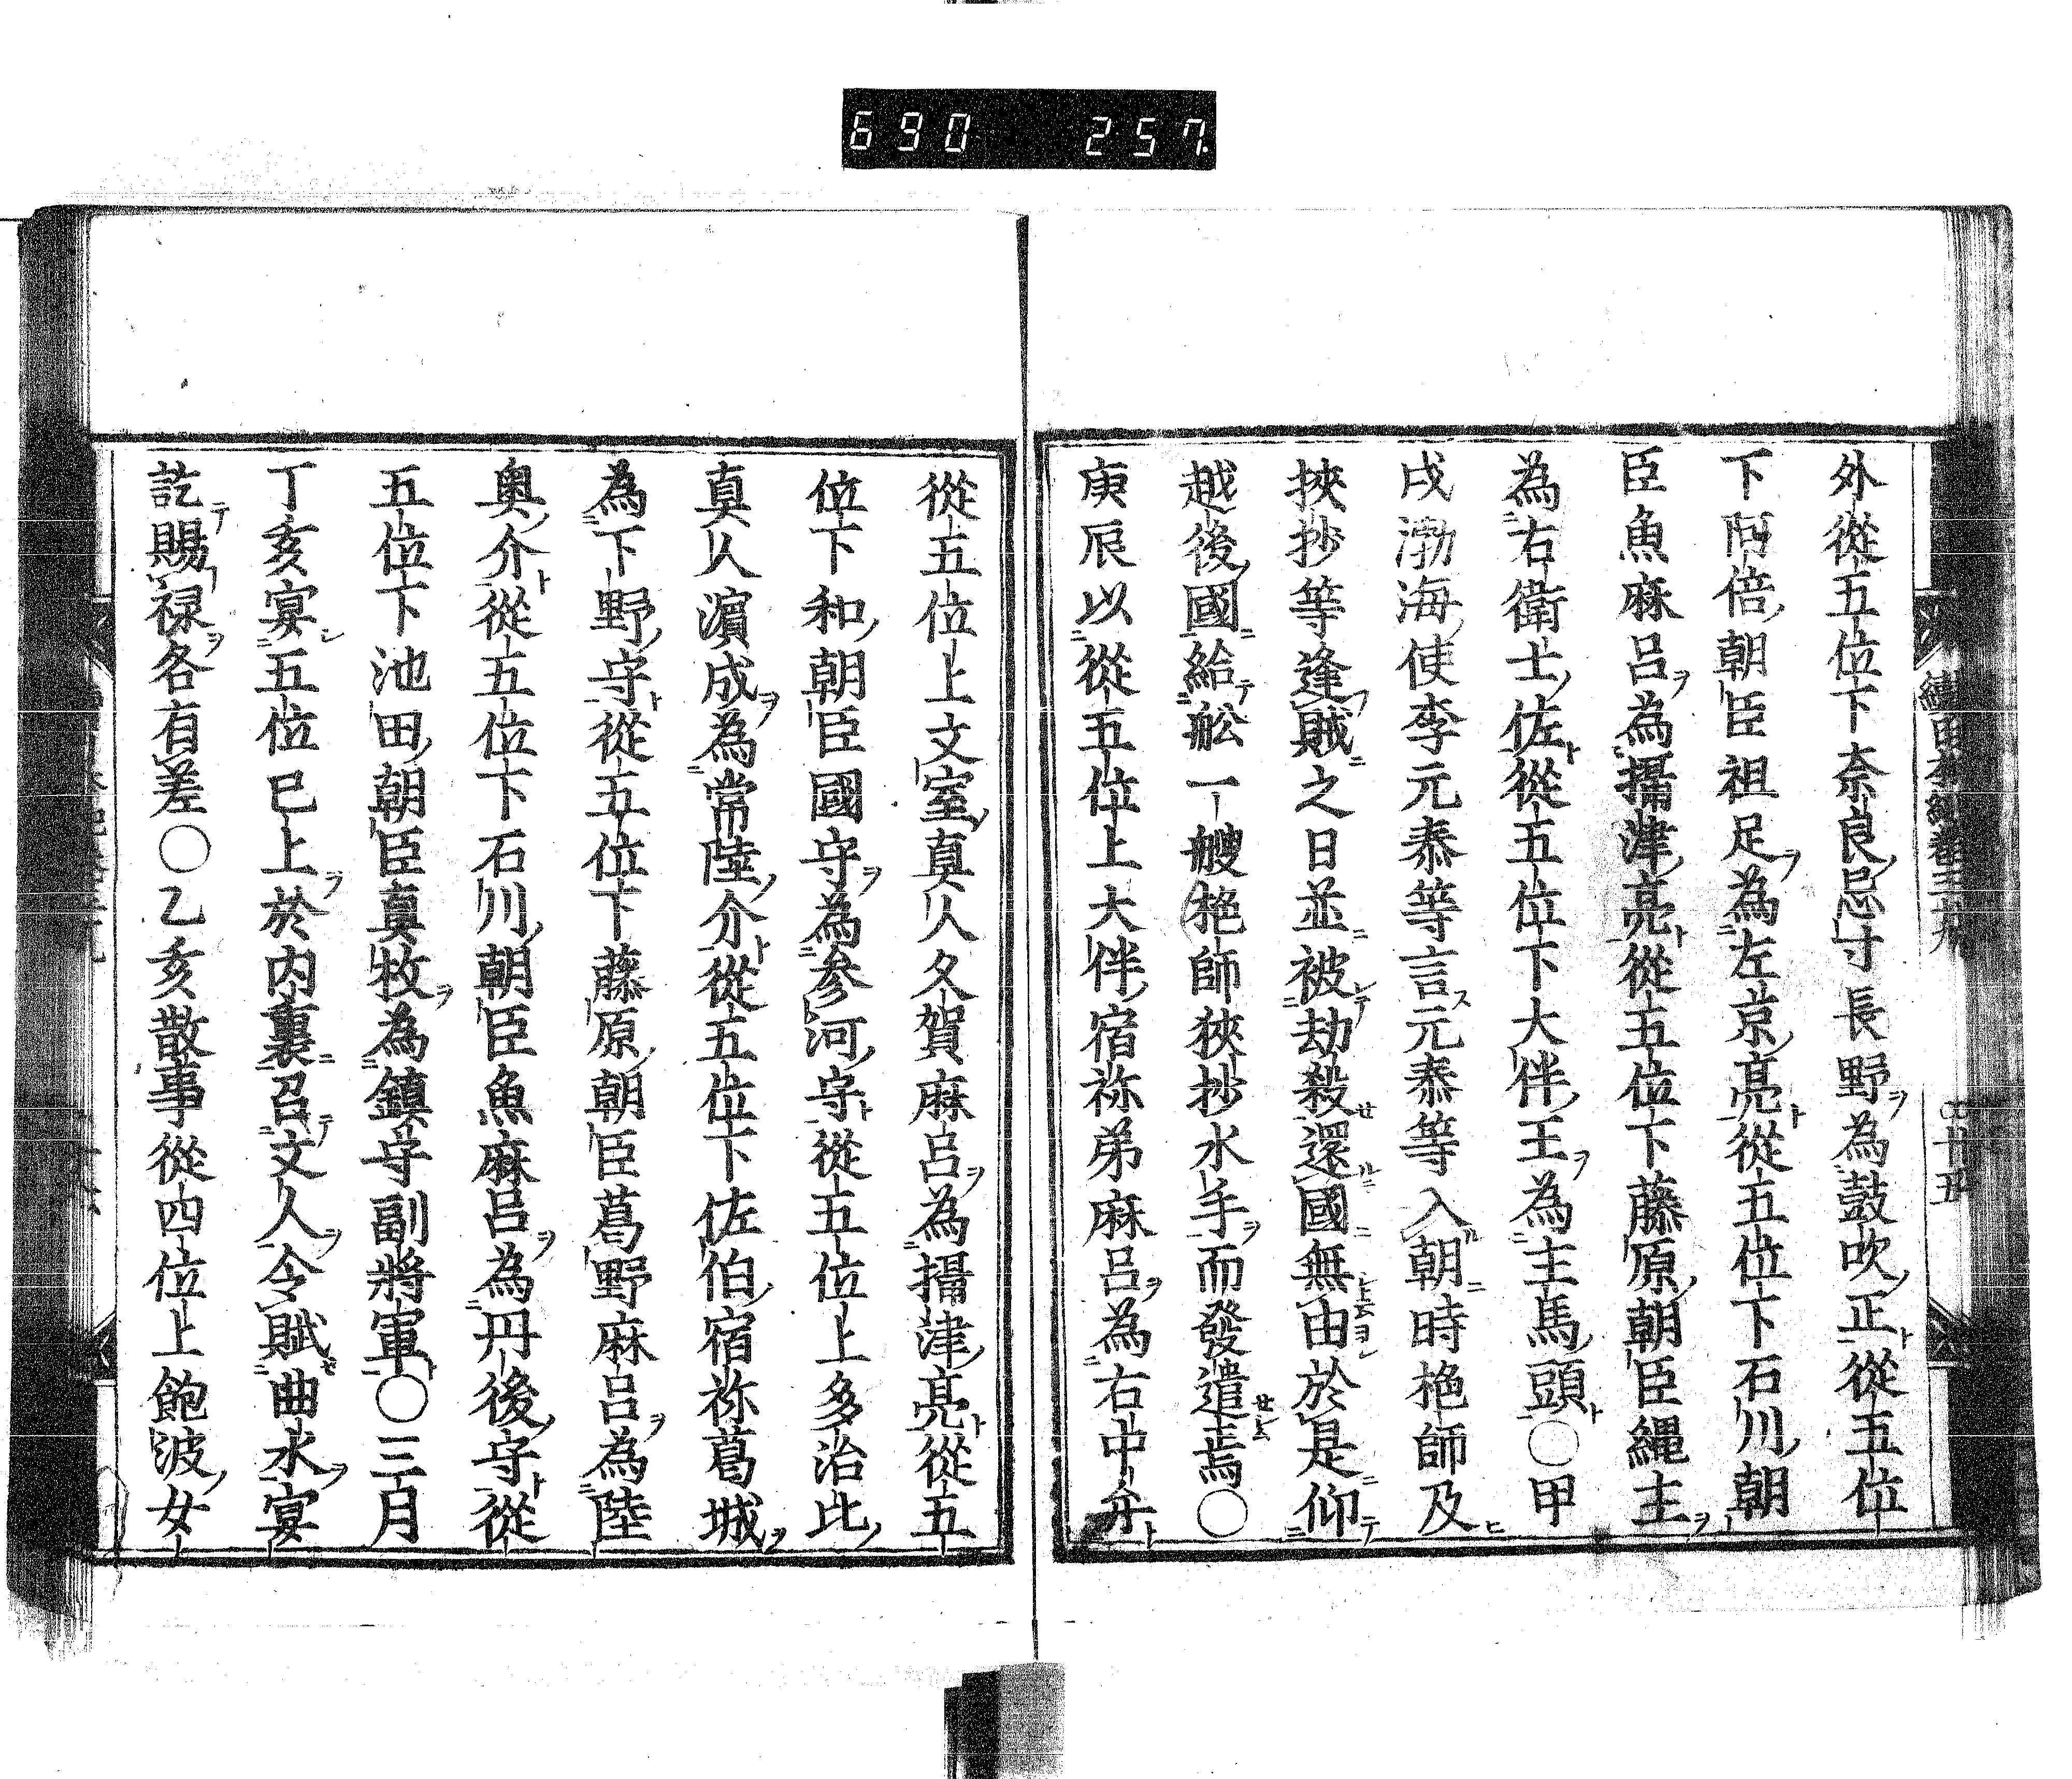 690 257.
外從五位下奈良忌寸長野為鼓吹正從五位
下阿倍朝臣祖足為左京亮從五位下石川朝
臣魚麻呂為攝津亮從五位下藤原朝臣繩主
為右衛士佐從五位下大伴王為主馬頭○甲
戌渤海使李元泰等言元泰等入朝時柂師及
挾抄等逢賊之日並被劫殺還國無由於是仰
越後國給舩一艘柂師狹抄水手而發遣焉○
庚辰以從五位上大伴宿祢弟麻呂為右中弁
從五位上文室真人久賀麻呂為攝津亮從五
位下和朝臣國守為參河守從五位上多治比
真人濵成為常陸介從五位下佐伯宿祢葛城
為下野守從五位下藤原朝臣葛野麻呂為陸
奧介從五位下石川朝臣魚麻呂為丹後守從
五位下池田朝臣真枚為鎮守副將軍○三月
丁亥宴五位已上於内裏召文人令賦曲水宴
訖賜禄各有差○乙亥散事從四位上飽波女